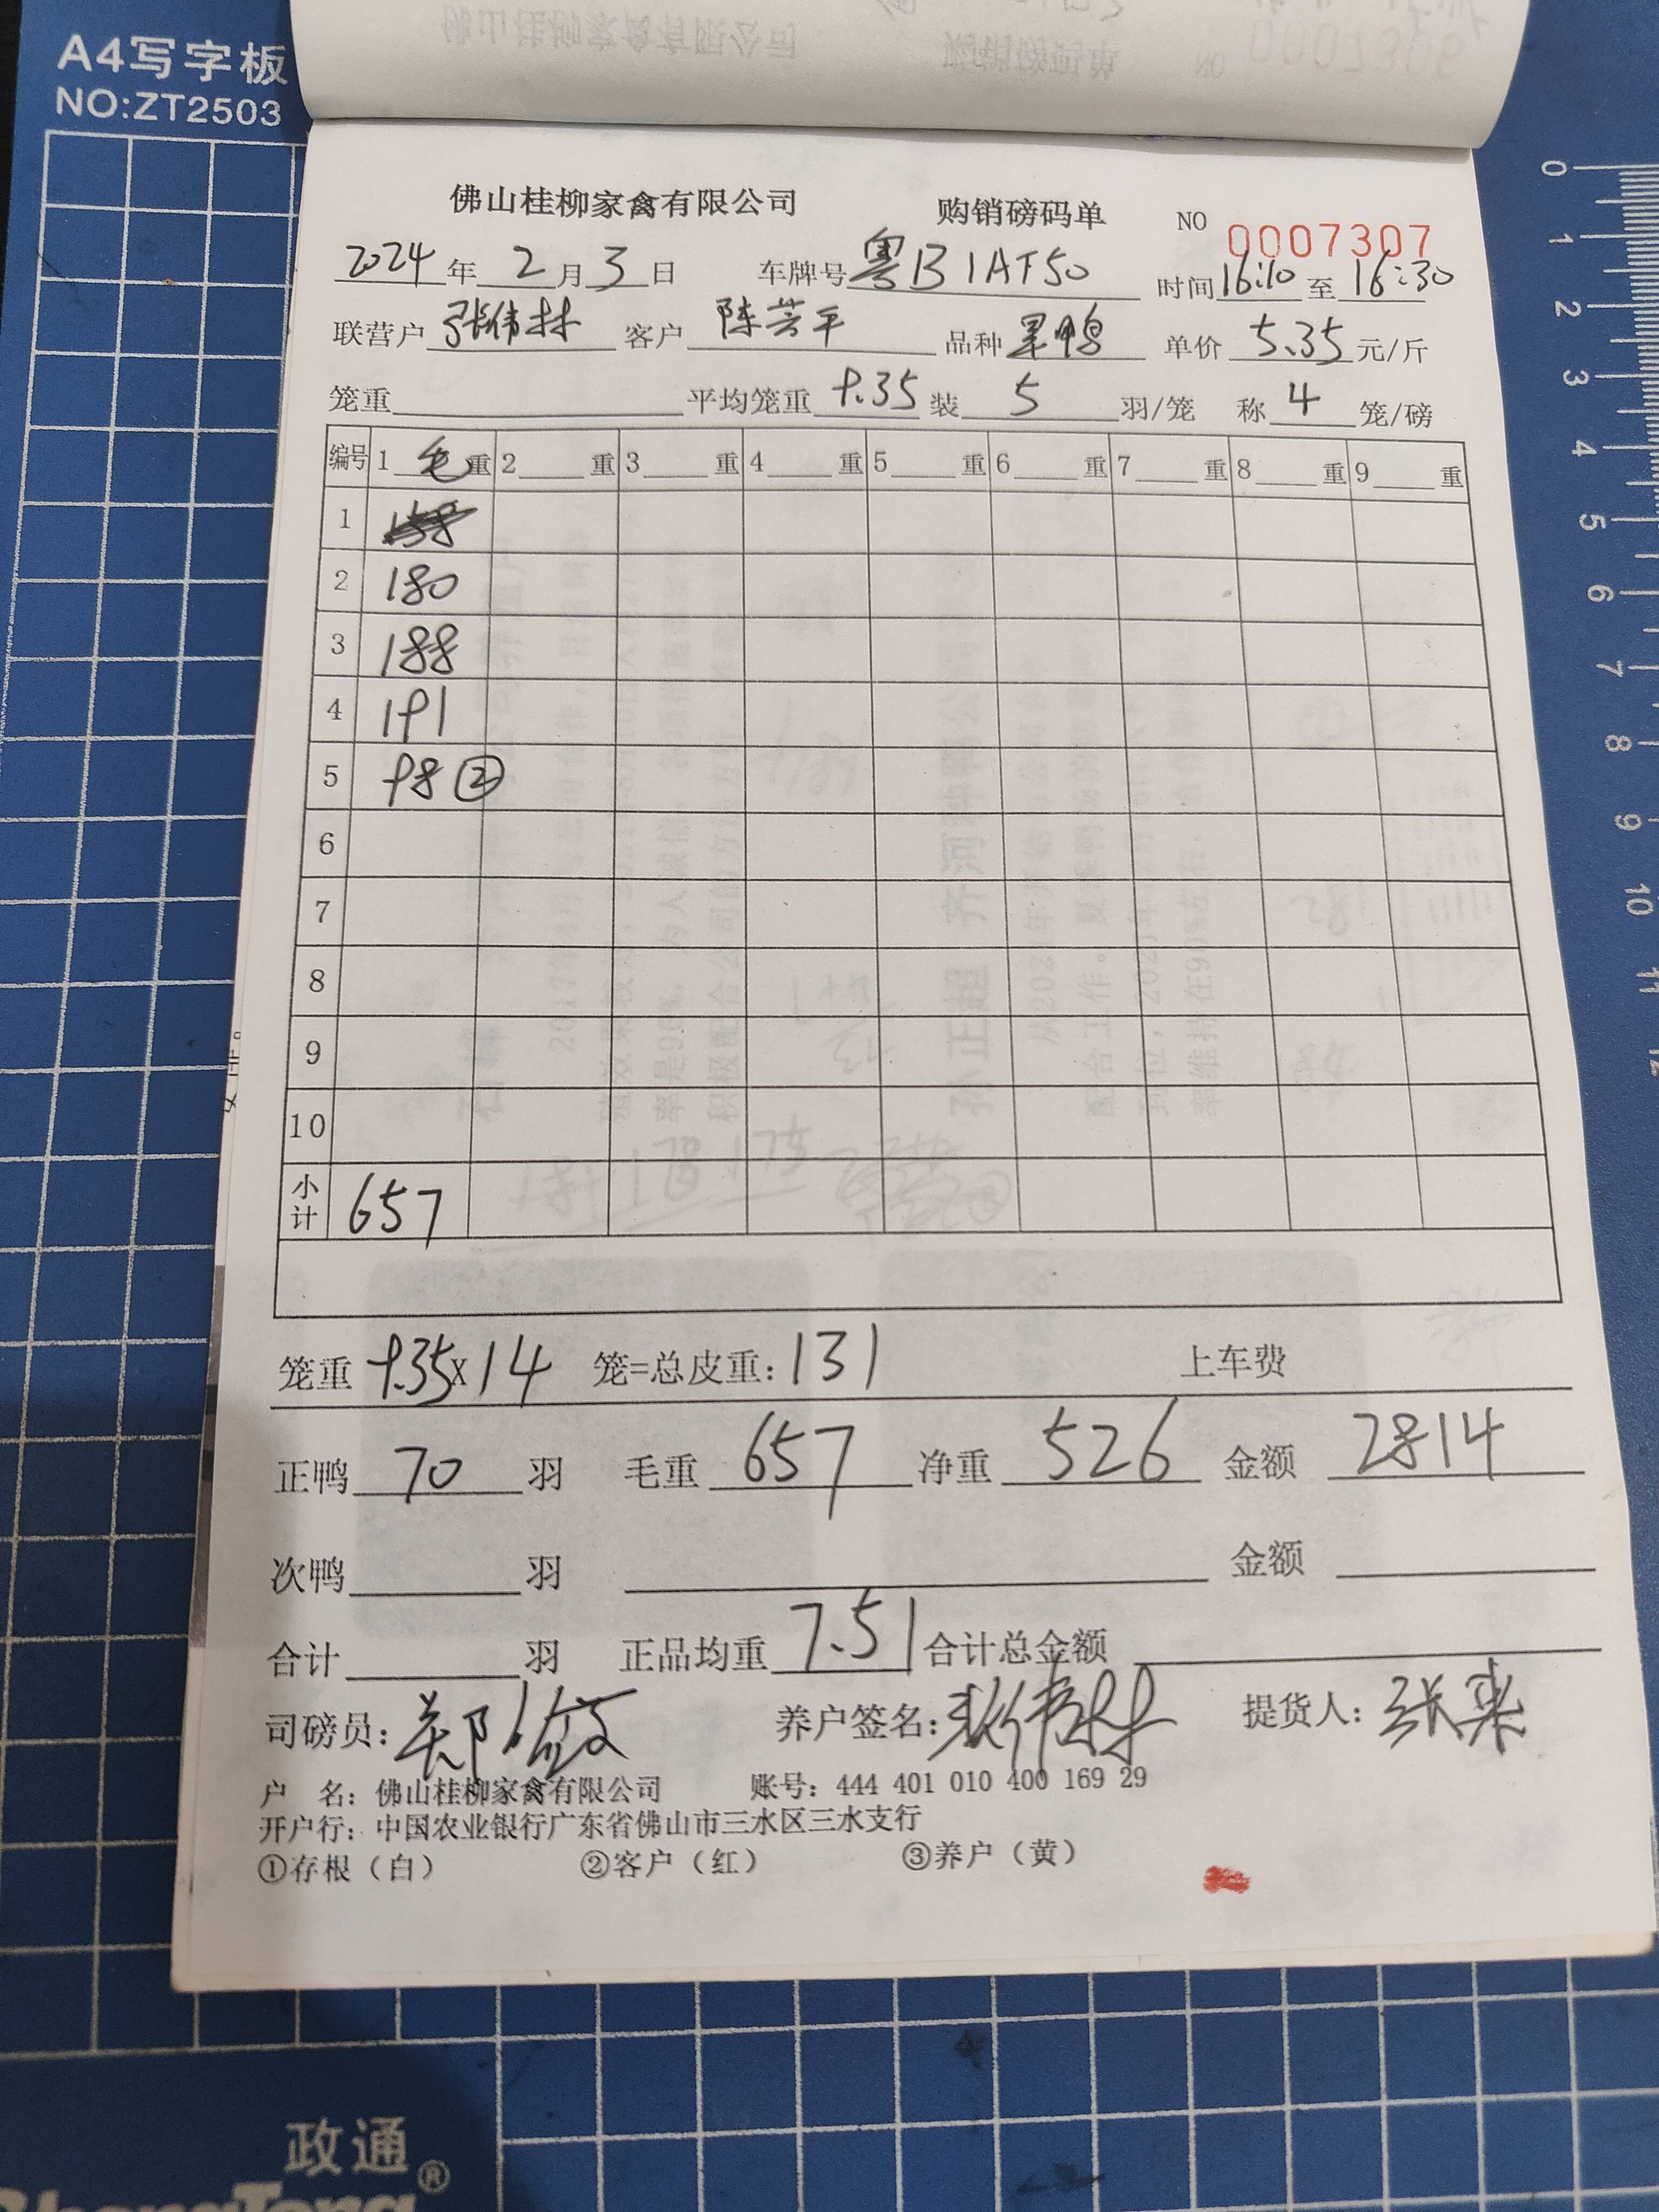 A4写字板
NO:ZT2503
佛山桂柳家禽有限公司 购销磅码单 NO 0007307
2024年2月3日 车牌号粤B1AF50 时间16:10至16:30
联营户张伟林 客户陈芳平 品种黑鸭 单价5.35元/斤
笼重 平均笼重9.35装5羽/笼 称4笼/磅
编号 1毛重 2重 3重 4重 5重 6重 7重 8重 9重
1 158
2 180
3 188
4 191
5 98②
6
7
8
9
10
小计 657
笼重9.35X14 笼=总皮重:131 上车费
正鸭70羽 毛重657净重526 金额2814
次鸭羽 金额
合计羽 正品均重7.51合计总金额
司磅员:郑 养户签名:张伟林 提货人:张
户 名:佛山桂柳家禽有限公司 账号:444 401 010 400 169 29
开户行:中国农业银行广东省佛山市三水区三水支行
①存根（白） ②客户（红） ③养户（黄）
0
1
2
3
4
5
6
7
8
9
10
11
12
政通®